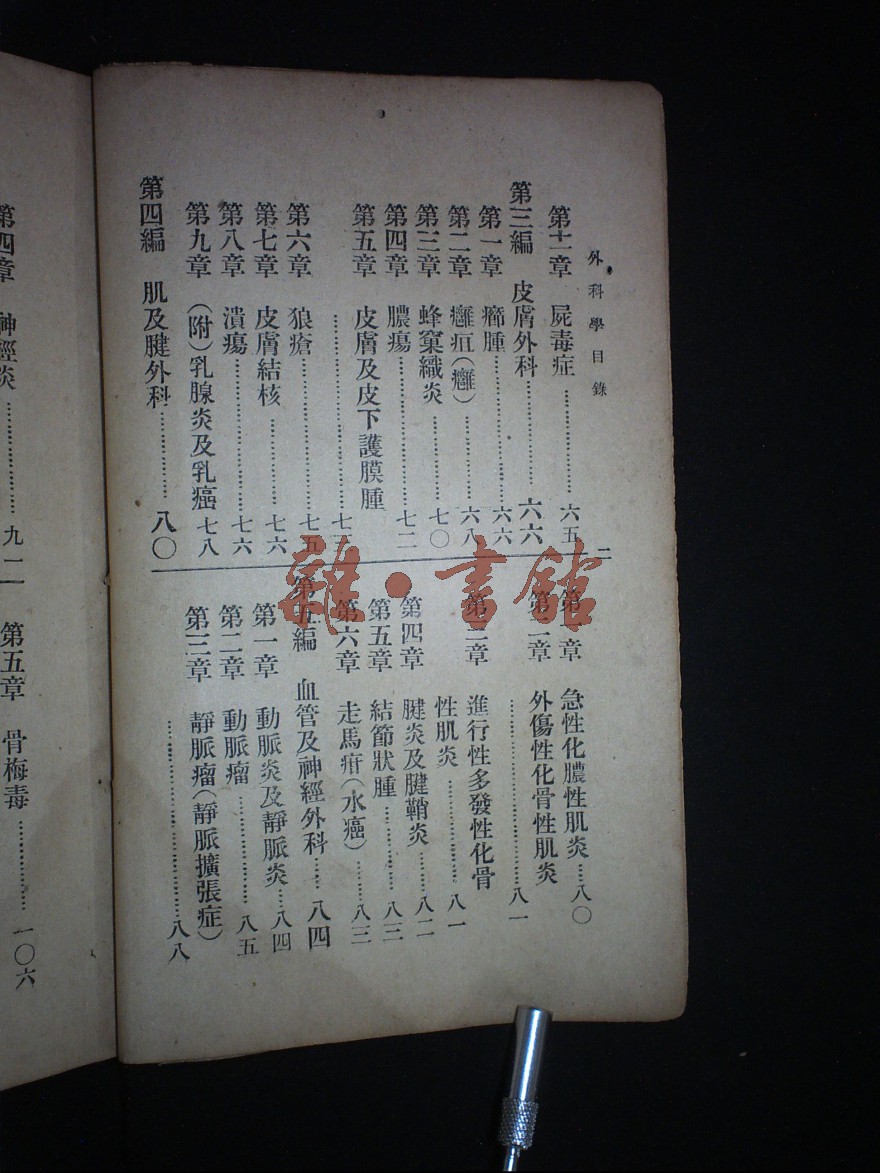 外科學目錄
二
第十一章 屍毒症………………六五
第三編 皮膚外科………………六六
第一章 癤腫………………六六
第二章 癰疽(癰)………………六八
第三章 蜂窠織炎………………七〇
第四章 膿瘍………………七二
第五章 皮膚及皮下護膜腫
………………七
第六章 狼瘡………………七五
第七章 皮膚結核………………七六
第八章 潰瘍………………七六
第九章 (附)乳腺炎及乳癌 七八
第四編 肌及腱外科………………八〇
第一章 急性化膿性肌炎……八〇
第二章 外傷性化骨性肌炎
………………八一
第三章 進行性多發性化骨
性肌炎………………八一
第四章 腱炎及腱鞘炎………八二
第五章 結節狀腫………………八三
第六章 走馬疳(水癌)………八三
第五編 血管及神經外科……八四
第一章 動脈炎及靜脈炎……八四
第二章 動脈瘤………………八五
第三章 靜脈瘤(靜脈擴張症)
………………八八
雜·書館
第四章 神經炎………………九二
第五章 骨梅毒………………一〇六